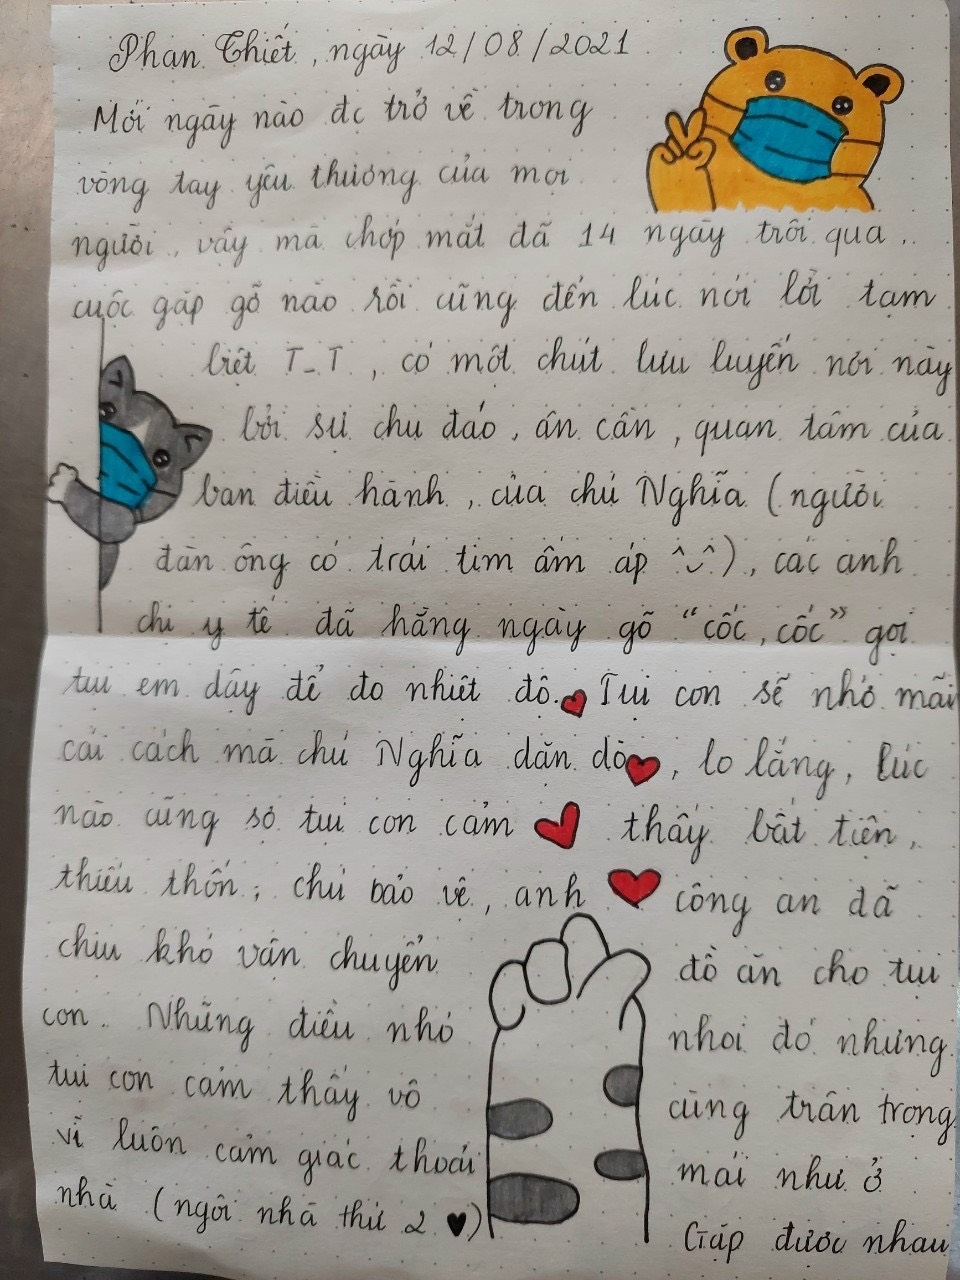 Phan Thiết, ngày 12/08/2021
Mới ngày nào đc trở về trong
vòng tay yêu thương của mọi
người, vậy mà chớp mắt đã 14 ngày trôi qua..
cuộc gặp gỡ nào rồi cũng đến lúc nói lời tạm
biệt T_T, có một chút lưu luyến nơi này
bởi sự chu đáo, ân cần, quan tâm của
ban điều hành, của chú Nghĩa (người
đàn ông có trái tim ấm áp ^‿^), các anh
chị y tế đã hằng ngày gõ "cốc, cốc" gọi
tụi em dậy để đo nhiệt độ. Tụi con sẽ nhớ mãi
cái cách mà chú Nghĩa dặn dò, lo lắng, lúc
nào cũng sợ tụi con cảm thấy bất tiện,
thiếu thốn; chú bảo vệ, anh công an đã
chịu khó vận chuyển đồ ăn cho tụi
con. Những điều nhỏ nhoi đó nhưng
tụi con cảm thấy vô cùng trân trọng
vì luôn cảm giác thoải mái như ở
nhà (ngôi nhà thứ 2 ♥) Gặp được nhau